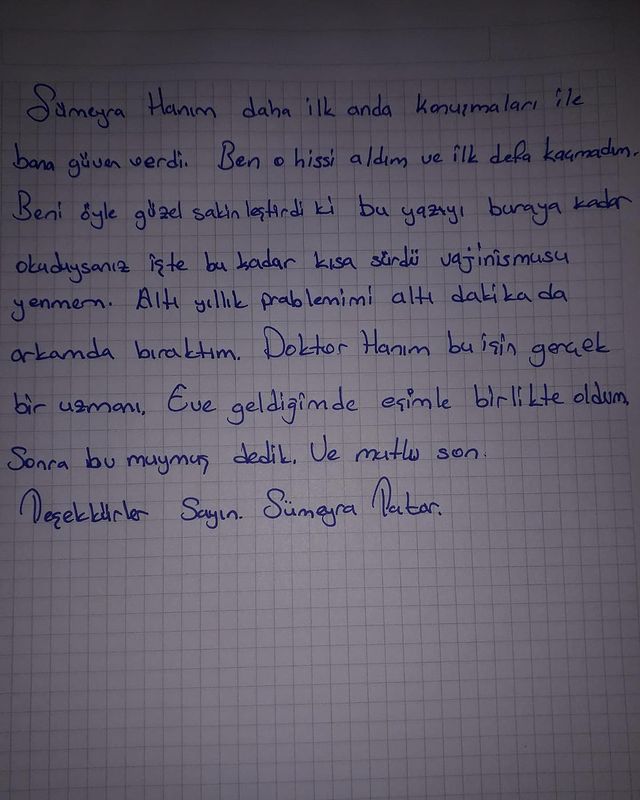 Sümeyra Hanım daha ilk anda konuşmaları ile
bana güven verdi. Ben o hissi aldım ve ilk defa kaçmadım.
Beni öyle güzel sakinleştirdi ki bu yazıyı buraya kadar
okuduysanız işte bu kadar kısa sürdü vajinismusu
yenmem. Altı yıllık problemimi altı dakikada
arkamda bıraktım. Doktor Hanım bu işin gerçek
bir uzmanı. Eve geldiğimde eşimle birlikte oldum.
Sonra bu muymuş dedik. Ve mutlu son.
Teşekkürler Sayın. Sümeyra